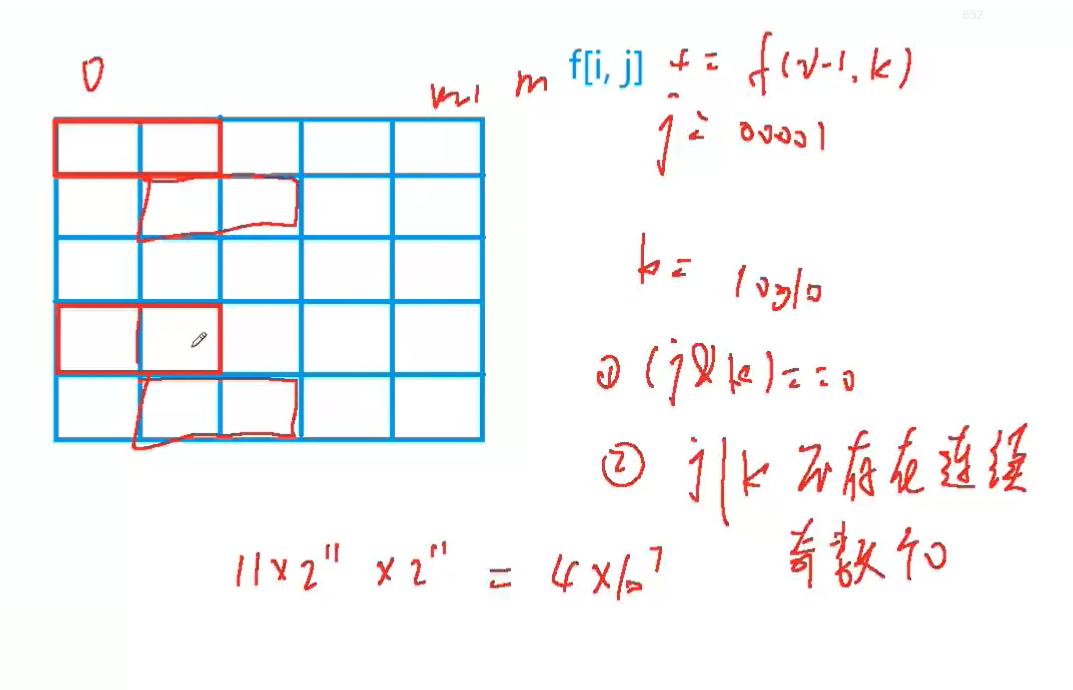 652
0 m-1 m f[i, j] += f(i-1, k)
j = 00001
k = 10010
① (j & k) == 0
② j|k 不存在连续
奇数个0
11 × 2^11 × 2^11 = 4 × 10^7